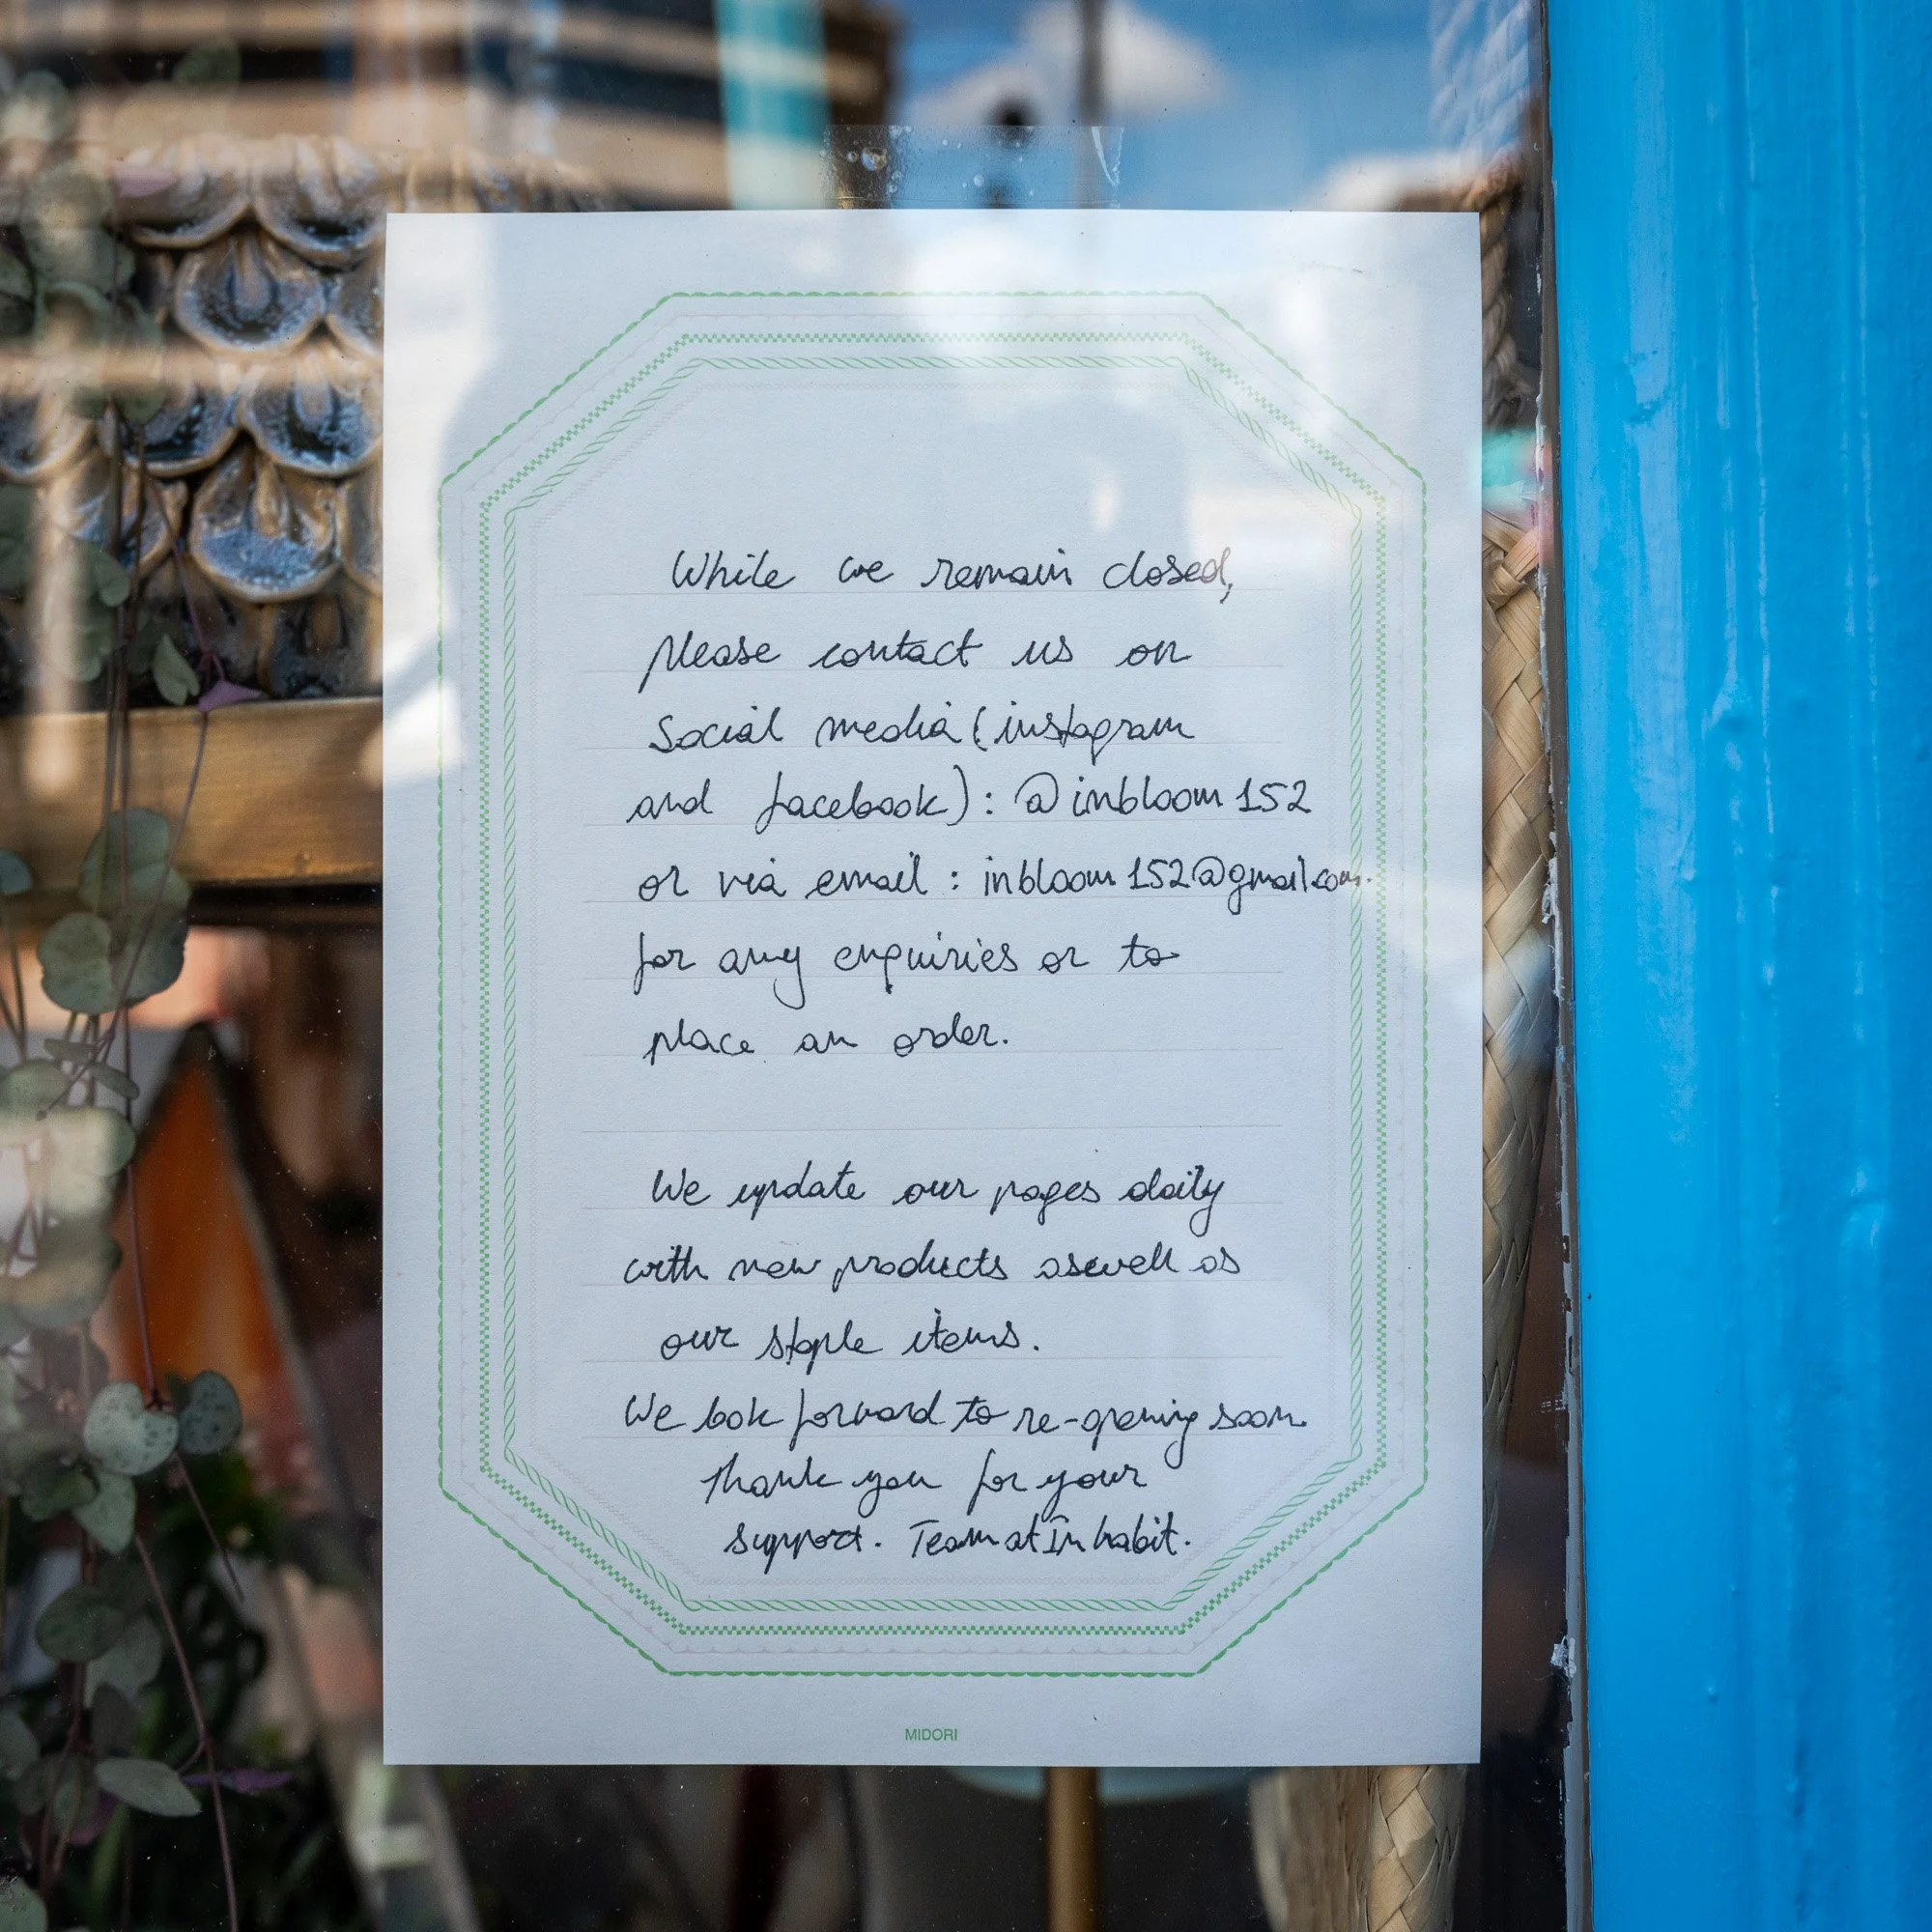 While we remain closed,
please contact us on
Social media (instagram
and facebook): @inbloom152
or via email: inbloom152@gmail.com.
for any enquiries or to
place an order.
We update our pages daily
with new products aswell as
our staple items.
We look forward to re-opening soon.
Thank you for your
support. Team at In habit.
MIDORI